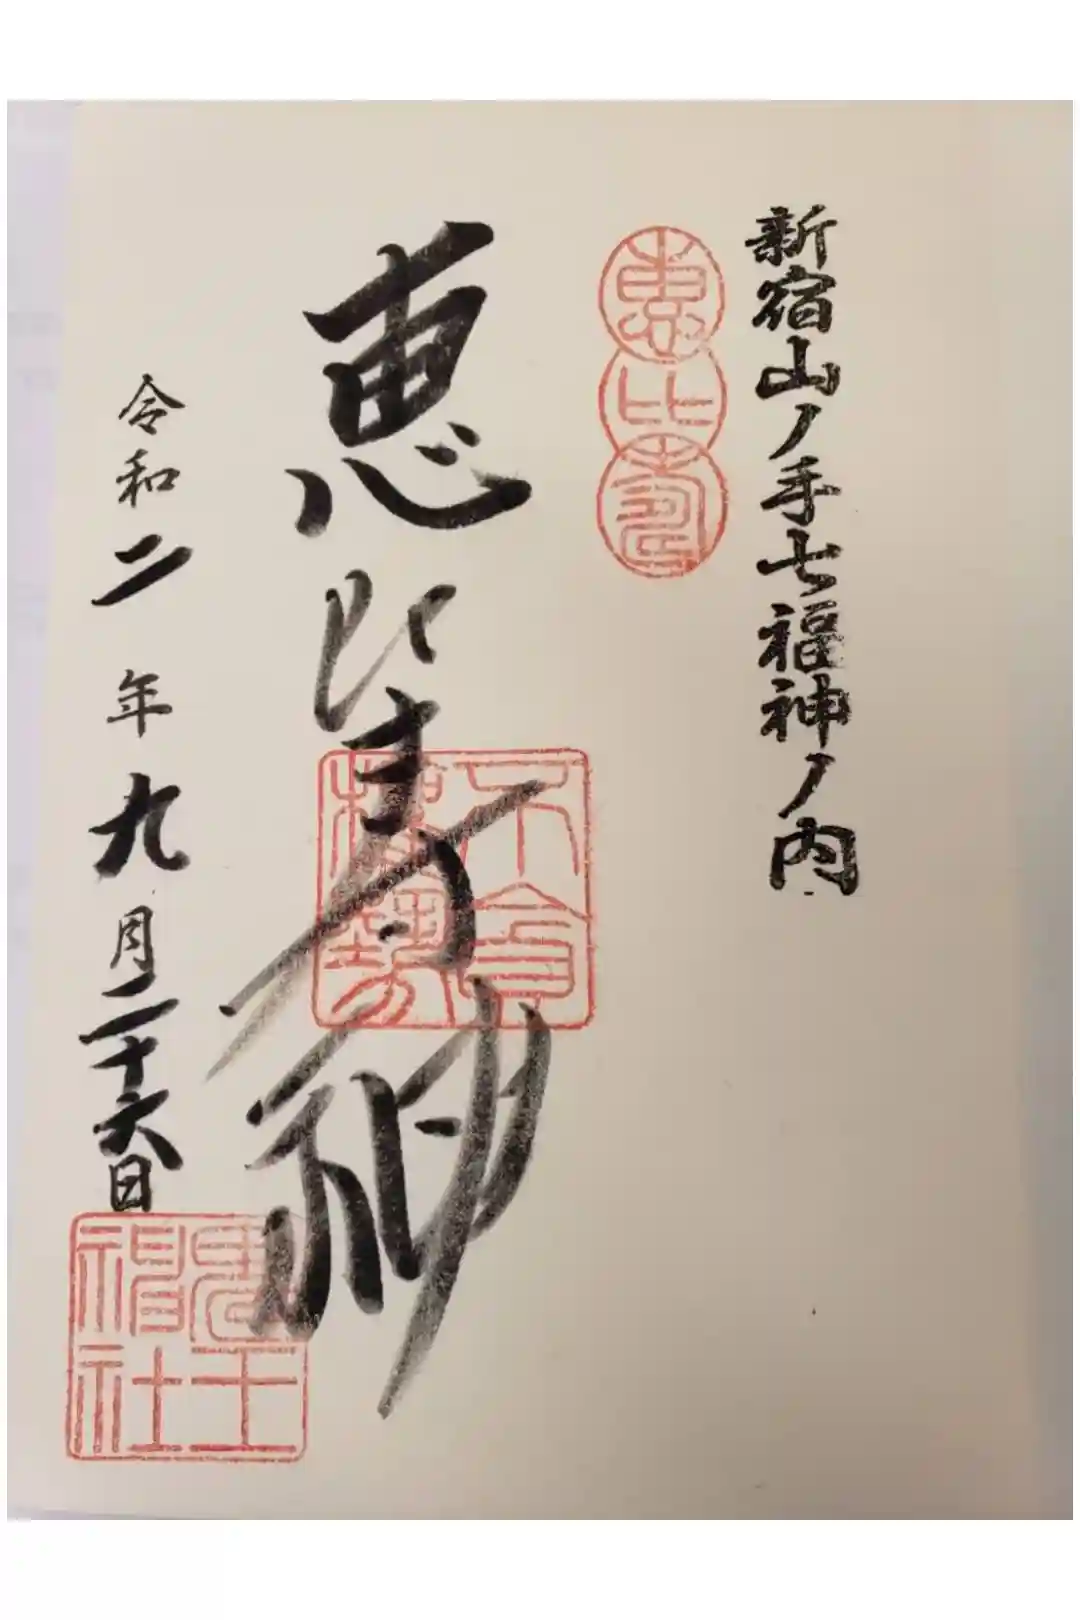 新宿山ノ手七福神ノ内
恵比寿
恵比寿神
令和二年九月二十六日
鬼王
神社